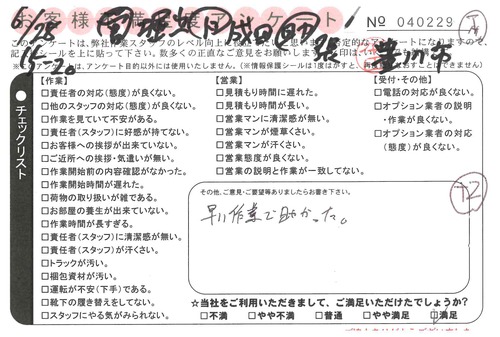 お客様
アンケート
No 040229
このアンケートは、弊社作業スタッフのレベル向上
6/28
15-20
豊川市
【作業】
□責任者の対応(態度)が良くない。
□他のスタッフの対応(態度)が良くない。
□作業を見ていて不安がある。
□責任者(スタッフ)に好感が持てない。
□お客様への挨拶が出来ていない。
□ご近所への挨拶・気遣いが無い。
□作業開始前の内容確認がなかった。
□作業開始時間が遅れた。
□荷物の取り扱いが雑である。
□お部屋の養生が出来ていない。
□作業時間が長すぎる。
□責任者(スタッフ)に清潔感が無い。
□責任者(スタッフ)が汗くさい。
□トラックが汚い。
□梱包資材が汚い。
□運転が不安(下手)である。
□靴下の履き替えをしてない。
□スタッフにやる気がみられない。
【営業】
□見積もり時間に遅れた。
□見積もり時間が長い。
□営業マンに清潔感が無い。
□営業マンが煙草くさい。
□営業マンが汗くさい。
□営業態度が良くない。
□営業の説明と作業が一致してない。
【受付・その他】
□電話の対応が良くない。
□オプション業者の説明
・作業が良くない。
□オプション業者の対応
(態度)が良くない。
●チェックリスト
その他、ご意見・ご要望等ありましたらお書き下さい。
早い作業で助かった。
☆当社をご利用いただきまして、ご満足いただけたでしょうか?
□不満 □やや不満 □普通 □やや満足 □満足